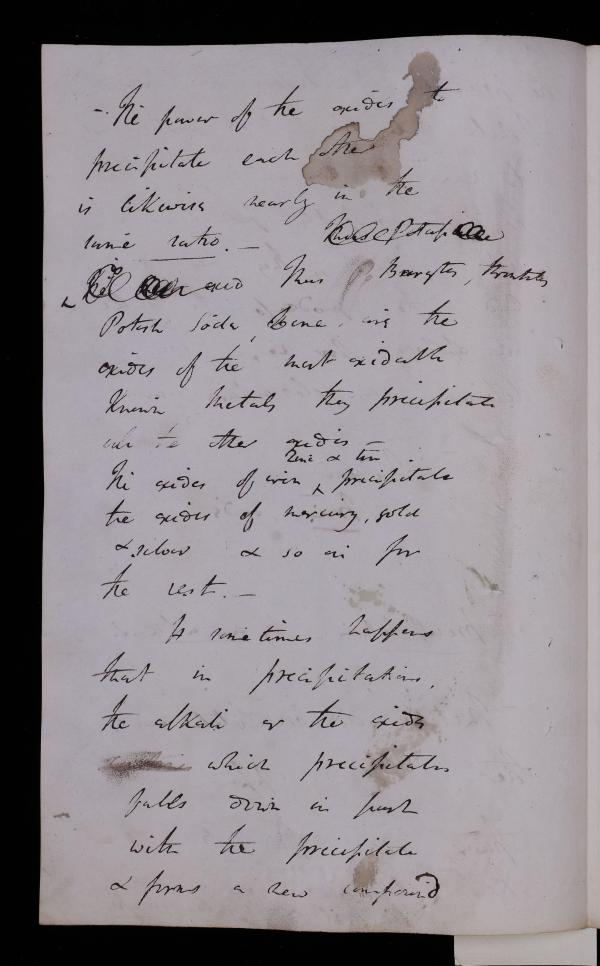 - The power of the oxides to
precipitate each other
is likewise nearly in the
same ratio. -
Thus Barytes, Strontites
Potash Soda, Lime, are the
oxides of the most oxidable
Known Metals they precipitate
all the other oxides -
zinc & tin
The oxides of iron ^ precipitate
the oxides of mercury, gold
& silver & so on for
the rest. -
It sometimes happens
that in precipitations,
the alkali or the oxide
which precipitates
falls down in part
with the precipitate
& forms a new compound